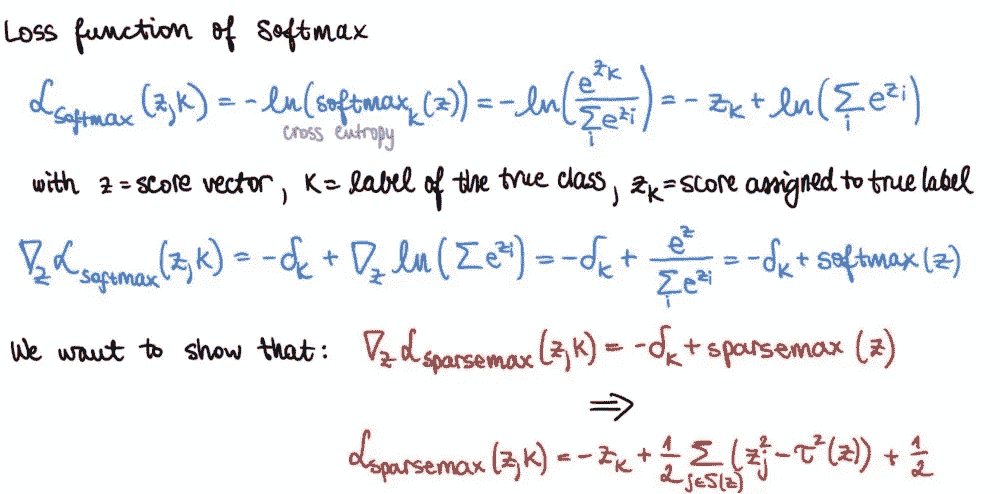 Loss function of softmax
ℒ_softmax (z, k) = -ln(softmax_k(z)) = -ln(e^{z_k} / Σ_i e^{z_i}) = -z_k + ln(Σ_i e^{z_i})
cross entropy
with z = score vector, k = label of the true class, z_k = score assigned to true label
∇_z ℒ_softmax (z, k) = -δ_k + ∇_z ln(Σ e^{z_i}) = -δ_k + e^z / Σ_i e^{z_i} = -δ_k + softmax(z)
We want to show that: ∇_z ℒ_sparsemax (z, k) = -δ_k + sparsemax (z)
⇒
ℒ_sparsemax (z, k) = -z_k + 1/2 Σ_{j∈S(z)} (z_j^2 - τ^2(z)) + 1/2